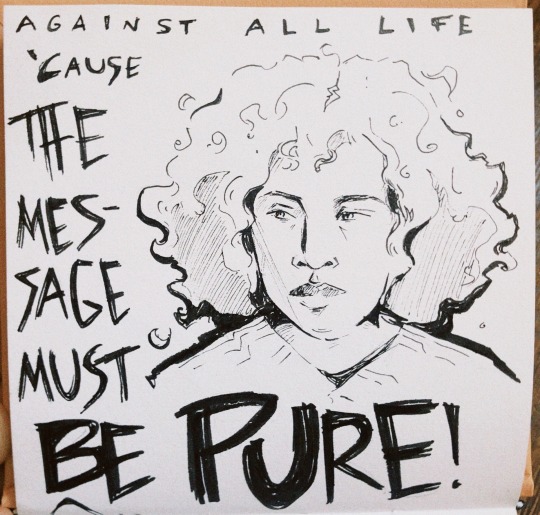 AGAINST ALL LIFE
'CAUSE
THE
MES-
SAGE
MUST
BE PURE!